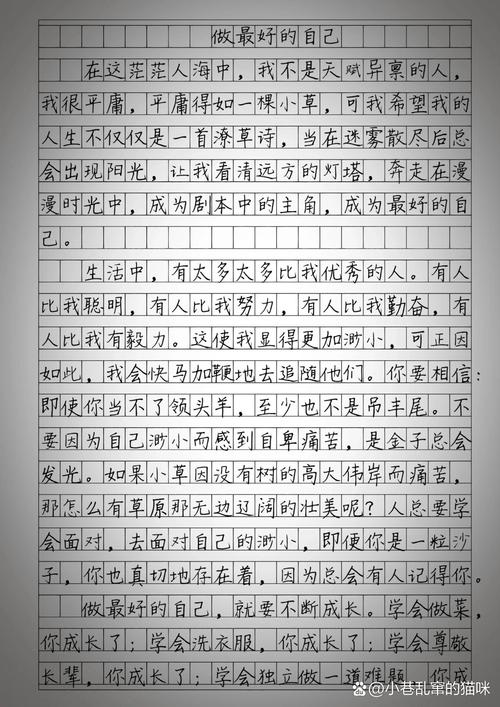 做最好的自己
在这茫茫人海中，我不是天赋异禀的人，
我很平庸，平庸得如一棵小草，可我希望我的
人生不仅仅是一首潦草诗，当在迷雾散尽后总
会出现阳光，让我看清远方的灯塔，奔走在漫
漫时光中，成为剧本中的主角，成为最好的自
己。
生活中，有太多太多比我优秀的人。有人
比我聪明，有人比我努力，有人比我勤奋，有
人比我有毅力。这使我显得更加渺小，可正因
如此，我会快马加鞭地去追随他们。你要相信：
即使你当不了领头羊，至少也不是吊丰尾。不
要因为自己渺小而感到自卑痛苦，是金子总会
发光。如果小草因没有树的高大伟岸而痛苦，
那怎么有草原那无边辽阔的壮美呢？人总要学
会面对，去面对自己的渺小，即便你是一粒沙
子，你也真切地存在着，因为总会有人记得你。
做最好的自己，就要不断成长。学会做菜，
你成长了；学会洗衣服，你成长了；学会尊敬
长辈，你成长了；学会独立做一道难题，你成
@小巷乱窜的猫咪